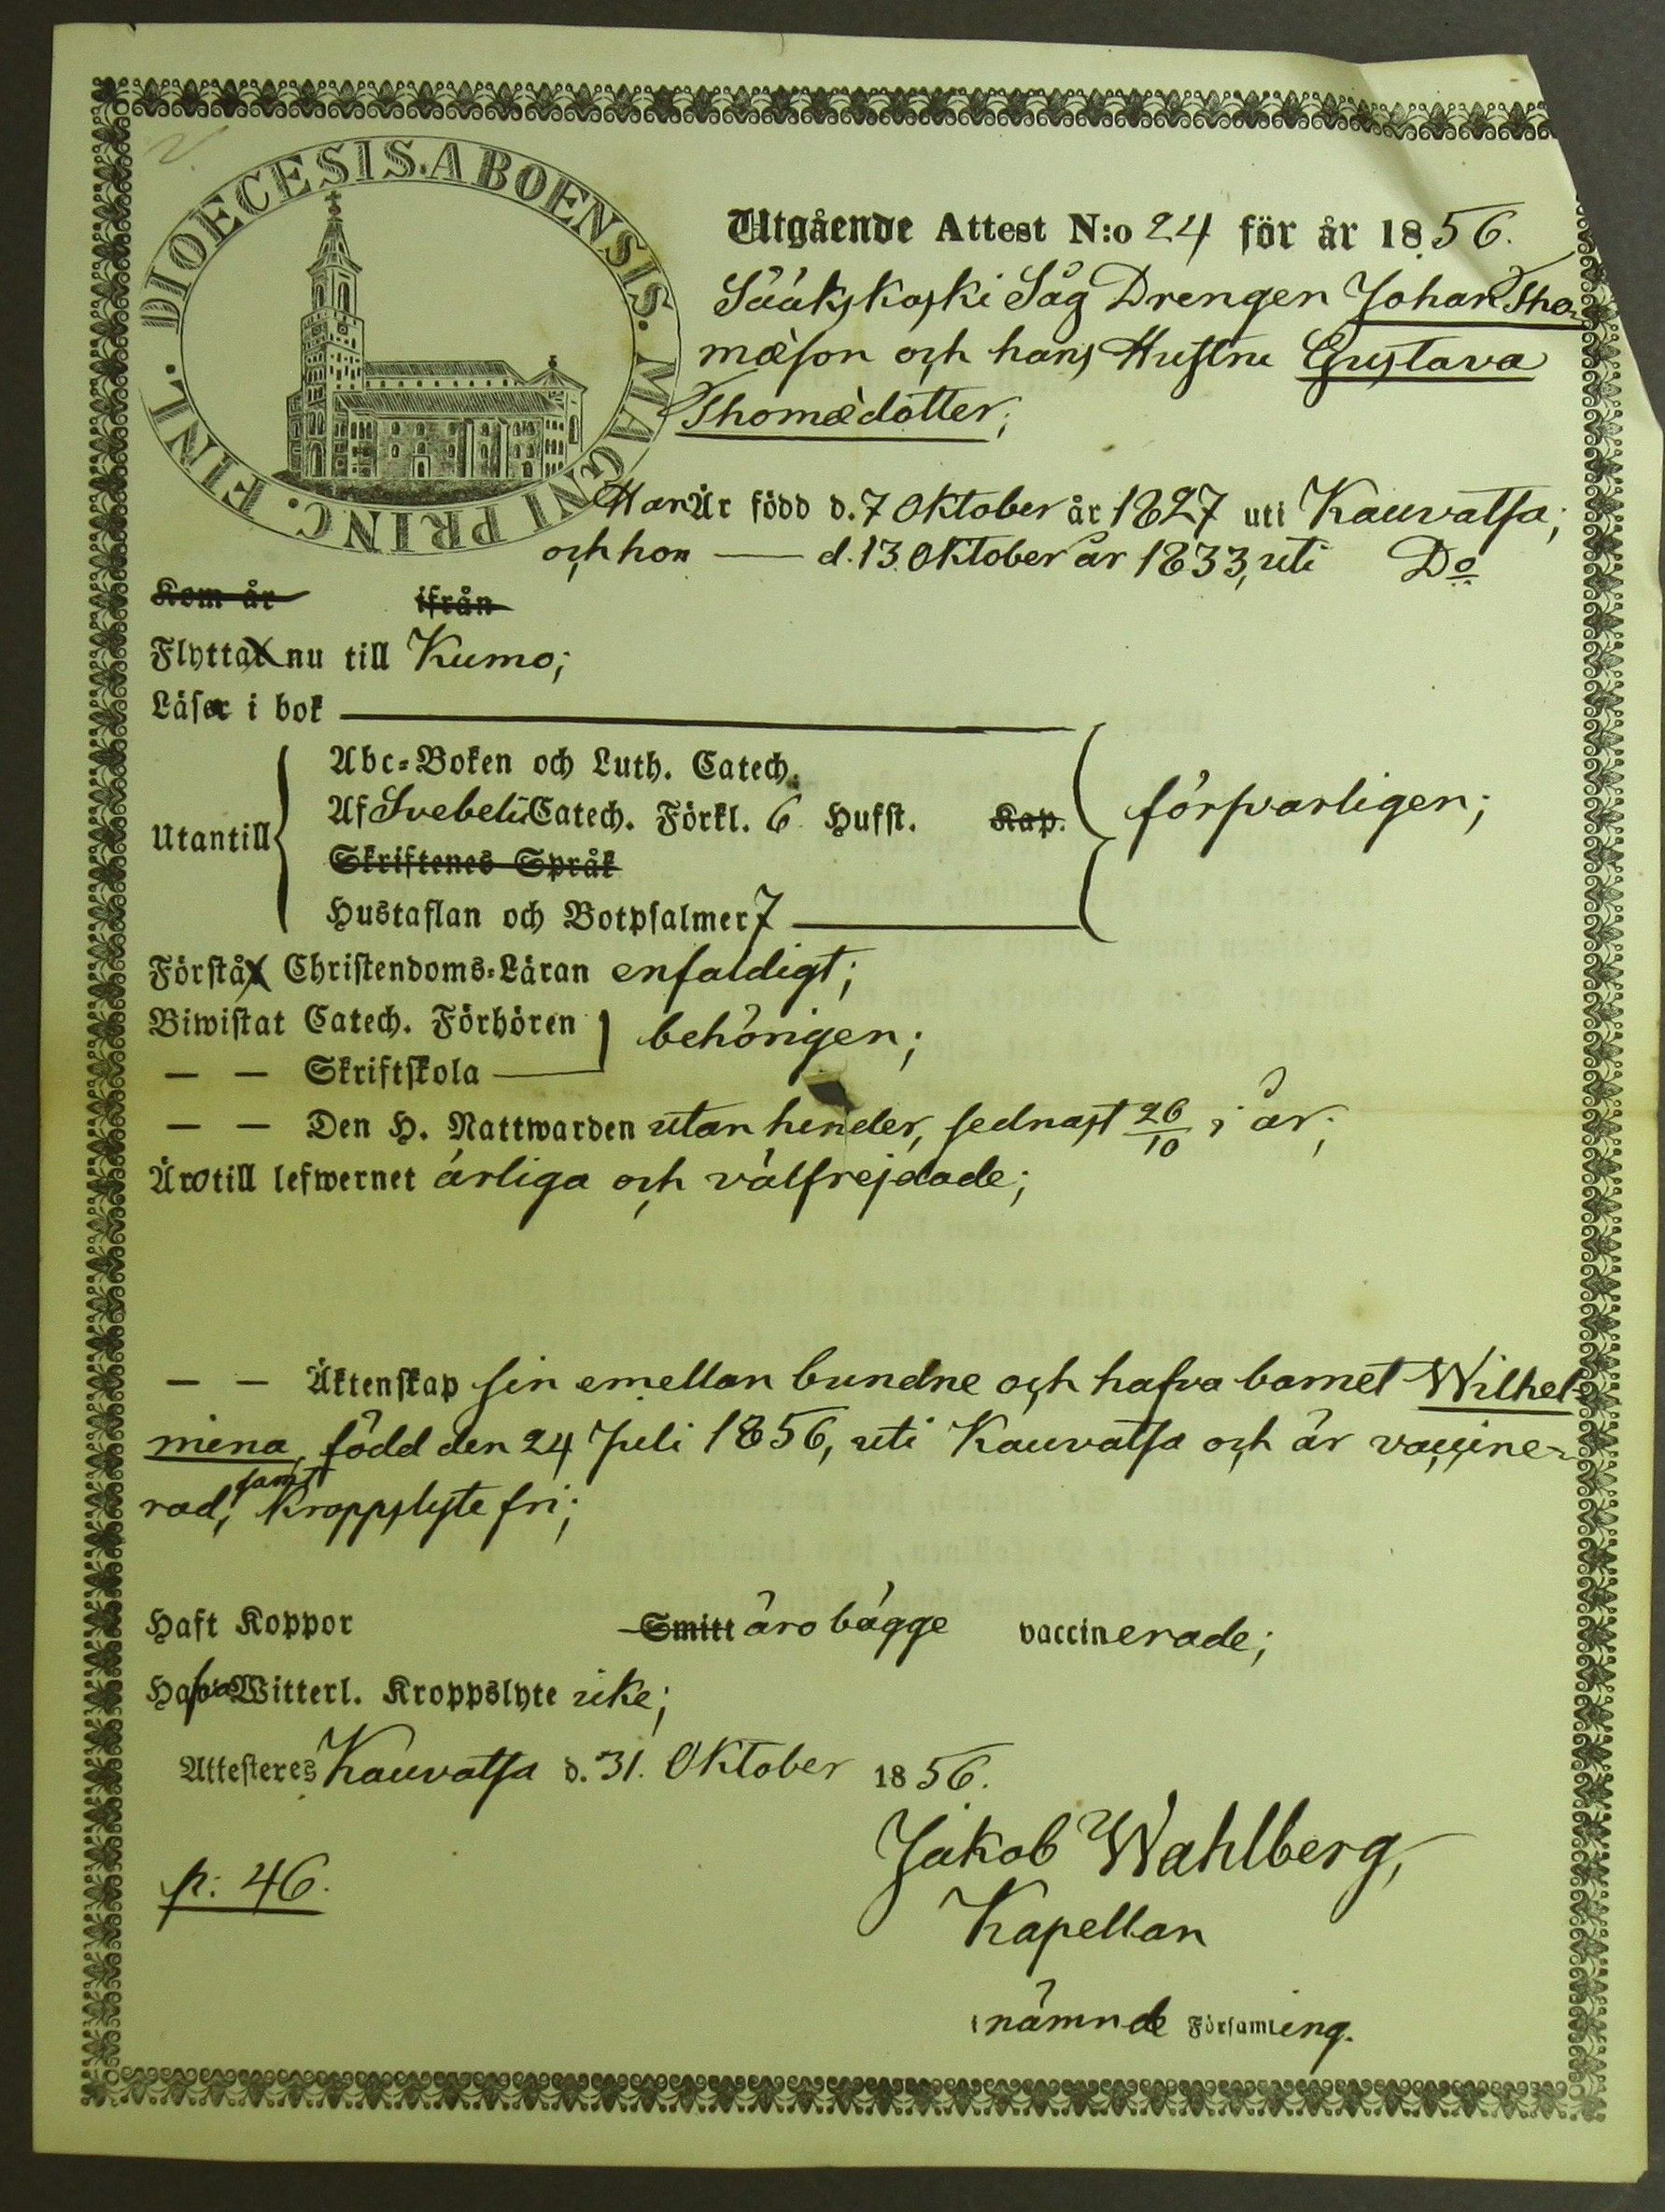 DIOECESIS. ABOENSIS. MAGNI PRINC. FINL.
Utgående Attest N:o 24 för år 1856.
Sääkskoski Såg Drengen Johan Tho-
mæson och hans Hustru Gustava
Thomædotter;
Han Är född d. 7 Oktober år 1827 uti Kauvatsa;
och hon — d. 13. Oktober år 1833, uti Do
Kom år ifrån
Flytta nu till Kumo;
Läsa i bok
Abc-Boken och Luth. Catech.
Af Svebelii Catech. Förkl. 6 Hufst. Kap.
Utantill
försvarligen;
Skriftenes Språk
Hustaflan och Botpsalmer 7
Förstå Christendoms-Läran enfaldigt;
Biwistat Catech. Förhören
behörigen;
— — Skriftskola
— — Den H. Nattwarden utan hinder, sednast 26/10 i år;
Äro till lefwernet ärliga och välfrejdade;
— — Äktenskap sin emellan bundne och hafva barnet Wilhel-
mina, född den 24 Juli 1856, uti Kauvatsa och är vaccine-
rad, samt kroppslyte fri;
Haft Koppor Smitt äro bägge vaccinerade;
Hafva Witterl. Kroppslyte icke;
Attesteres Kauvatsa d. 31. Oktober 1856.
Jakob Wahlberg,
p: 46.
Kapellan
i nämnde Församling.